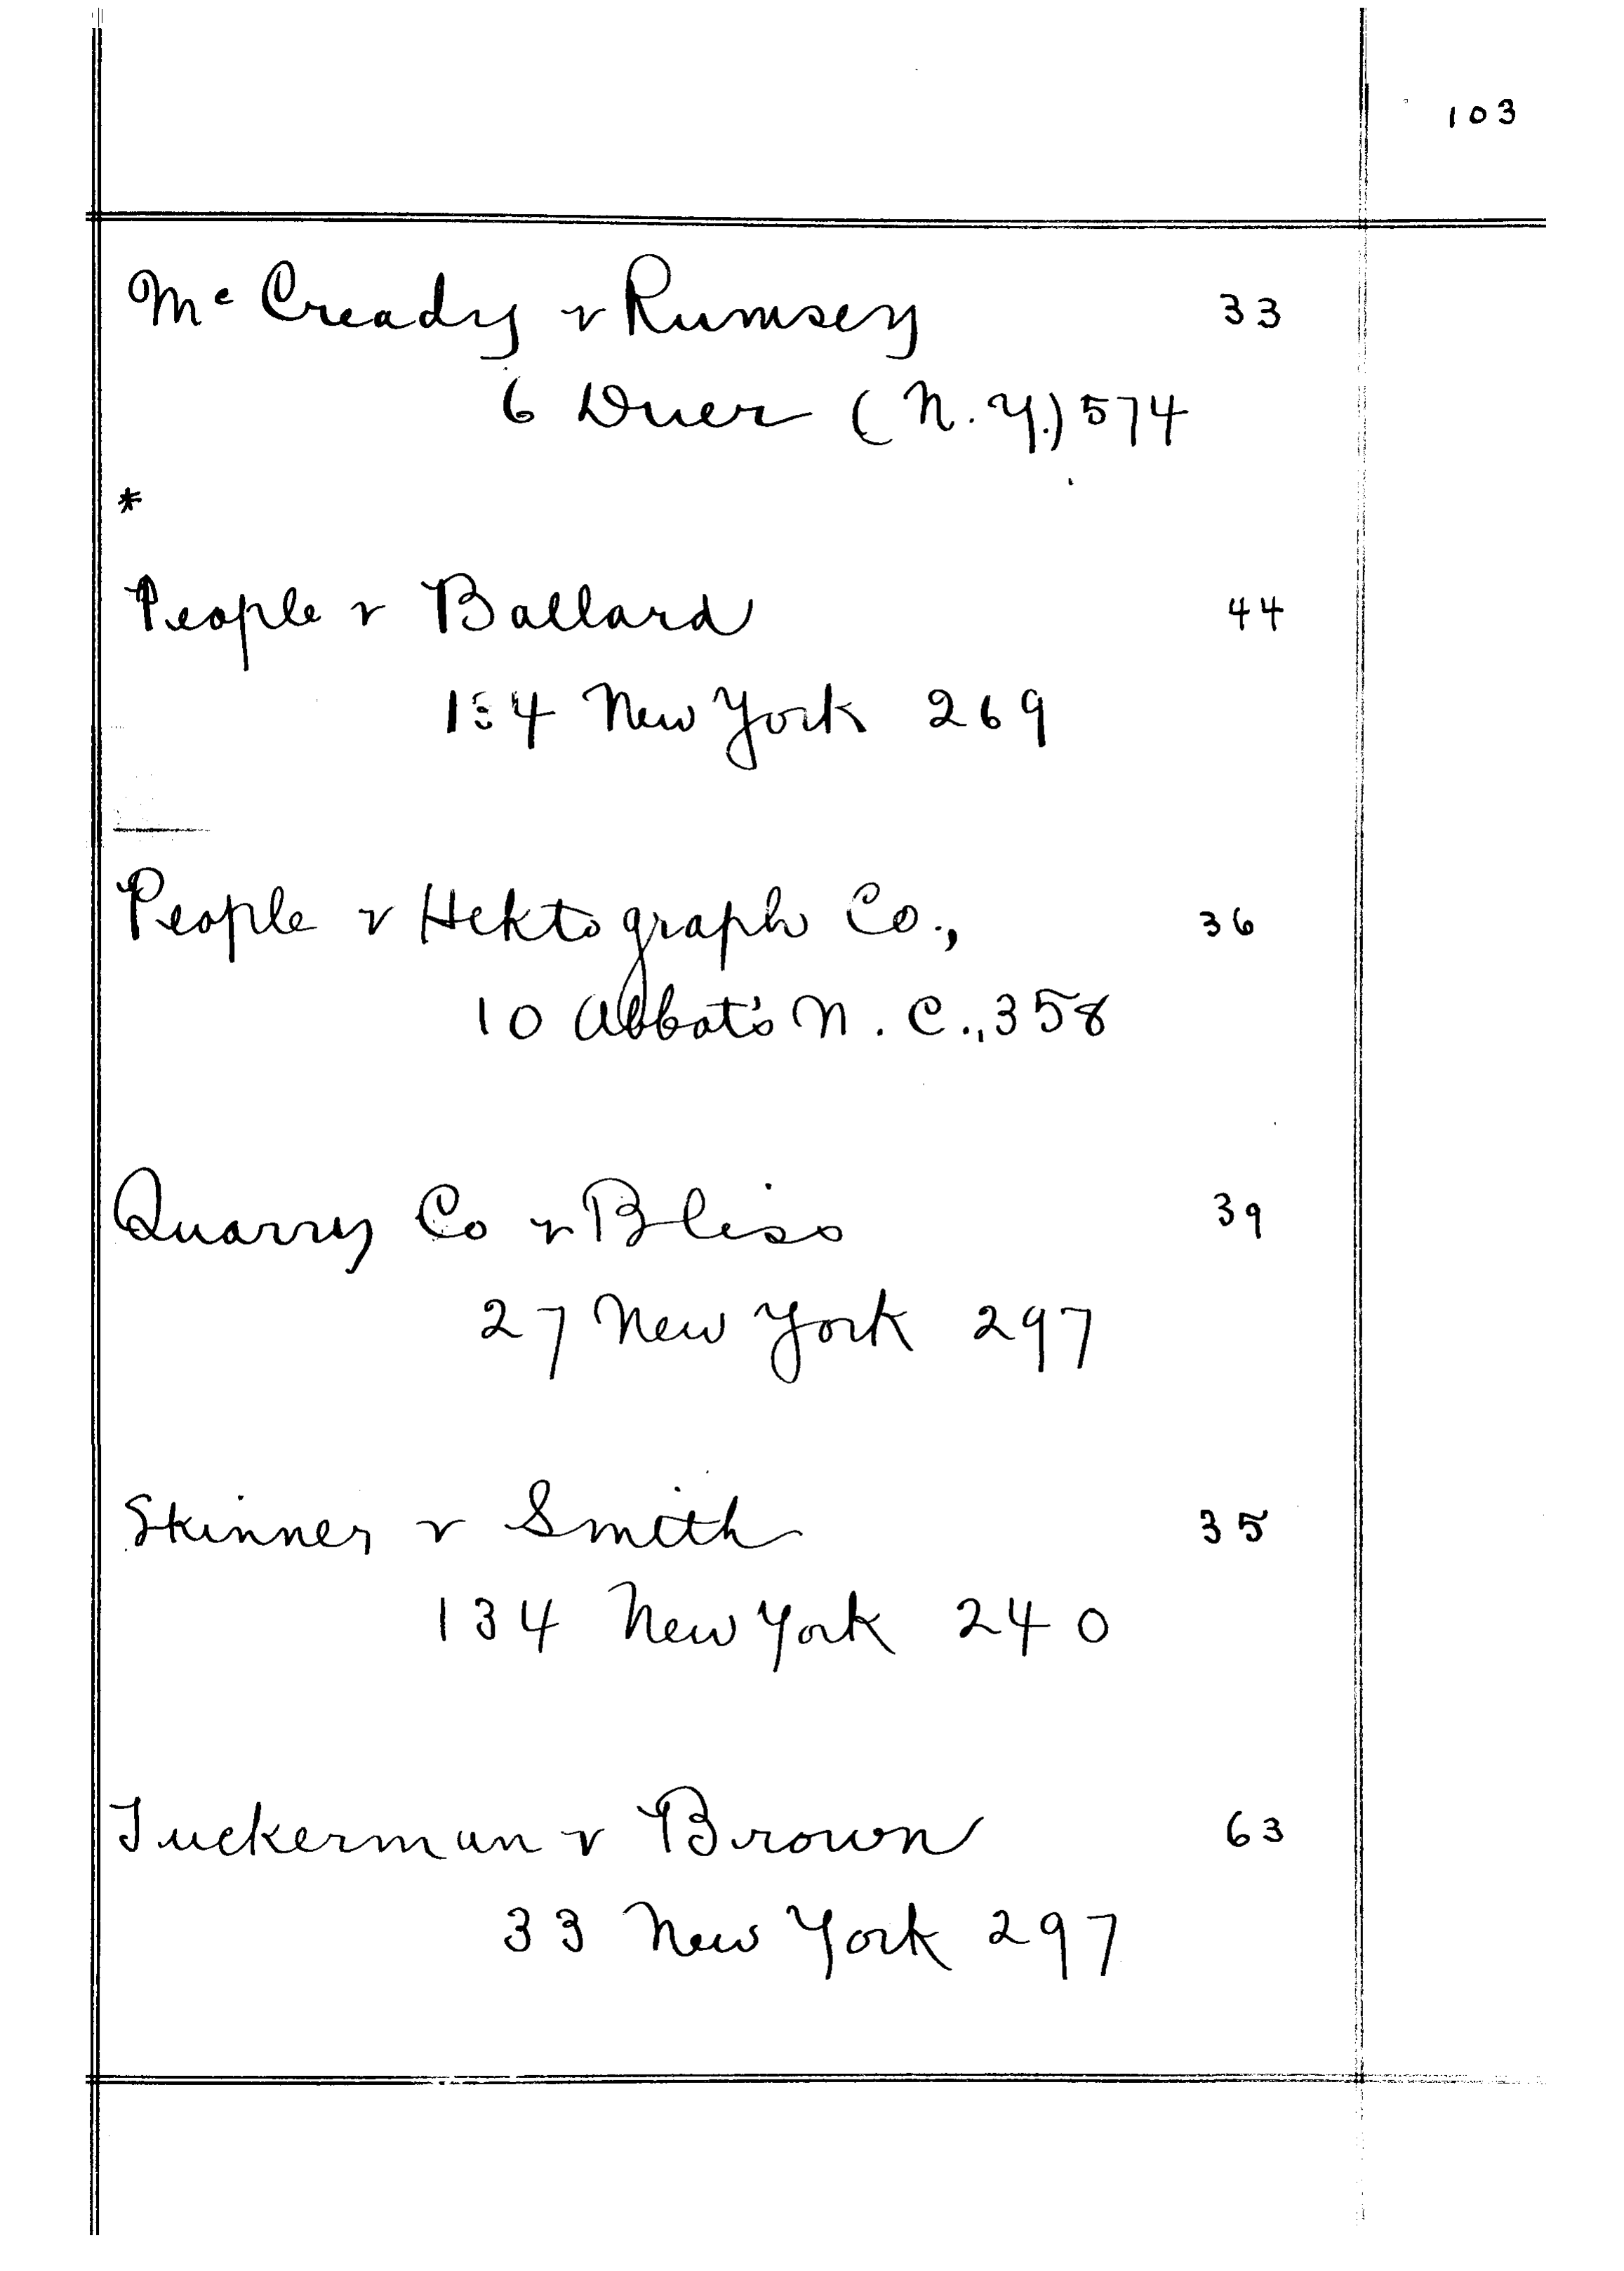 103
Mc Cready v Rumsey 33
6 Duer (N.Y.) 574
*
People v Ballard 44
134 New York 269
People v Hektograph Co., 36
10 Abbot's N.C., 358
Quarry Co v Bliss 39
27 New York 297
Skinner v Smith 35
134 New York 240
Tuckerman v Brown 63
33 New York 297